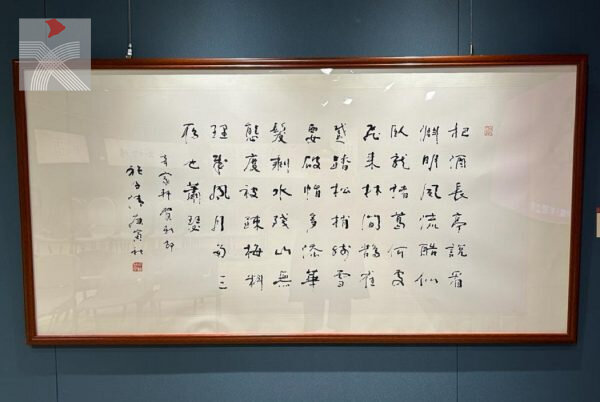 把酒長亭說看
渊明風流酷似
臥龍諸葛何處
飛來林間鵲雀
蹙踏松梢殘雪
要破帽多添華
髮剩水殘山無
態度被疎梅料
理成風月兩三
雁也蕭瑟
辛稼軒賀新郎
庚寅秋